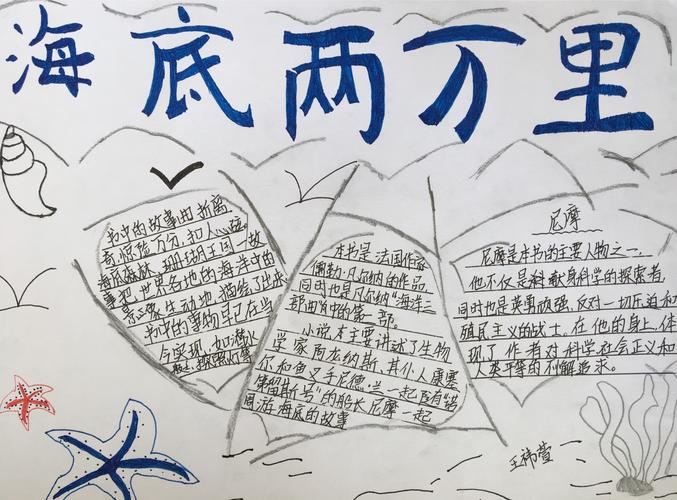 海底两万里
书中的故事曲折离
奇,惊险万分,扣人心弦
海底森林、珊瑚王国一故
事把世界各地的海洋中的
景象生动地描绘了出来
书中的事物早已在当
今实现,如潜水
艇、探照灯等
本书是法国作家
儒勒·凡尔纳的作品,
同时也是凡尔纳"海洋三
部曲"当中的第一部。
小说本主要讲述了生物
学家阿龙纳斯,其仆人康塞
尔和鱼叉手尼德·兰一起随"诺
第留斯号"的船长尼摩一起
周游海底的故事
尼摩
尼摩是本书的主要人物之一,
他不仅是献身科学的探索者,
同时也是英勇顽强、反对一切压迫和
殖民主义的战士,在他的身上,体
现了作者对科学社会正义和
人类平等的不懈追求。
王祎萱